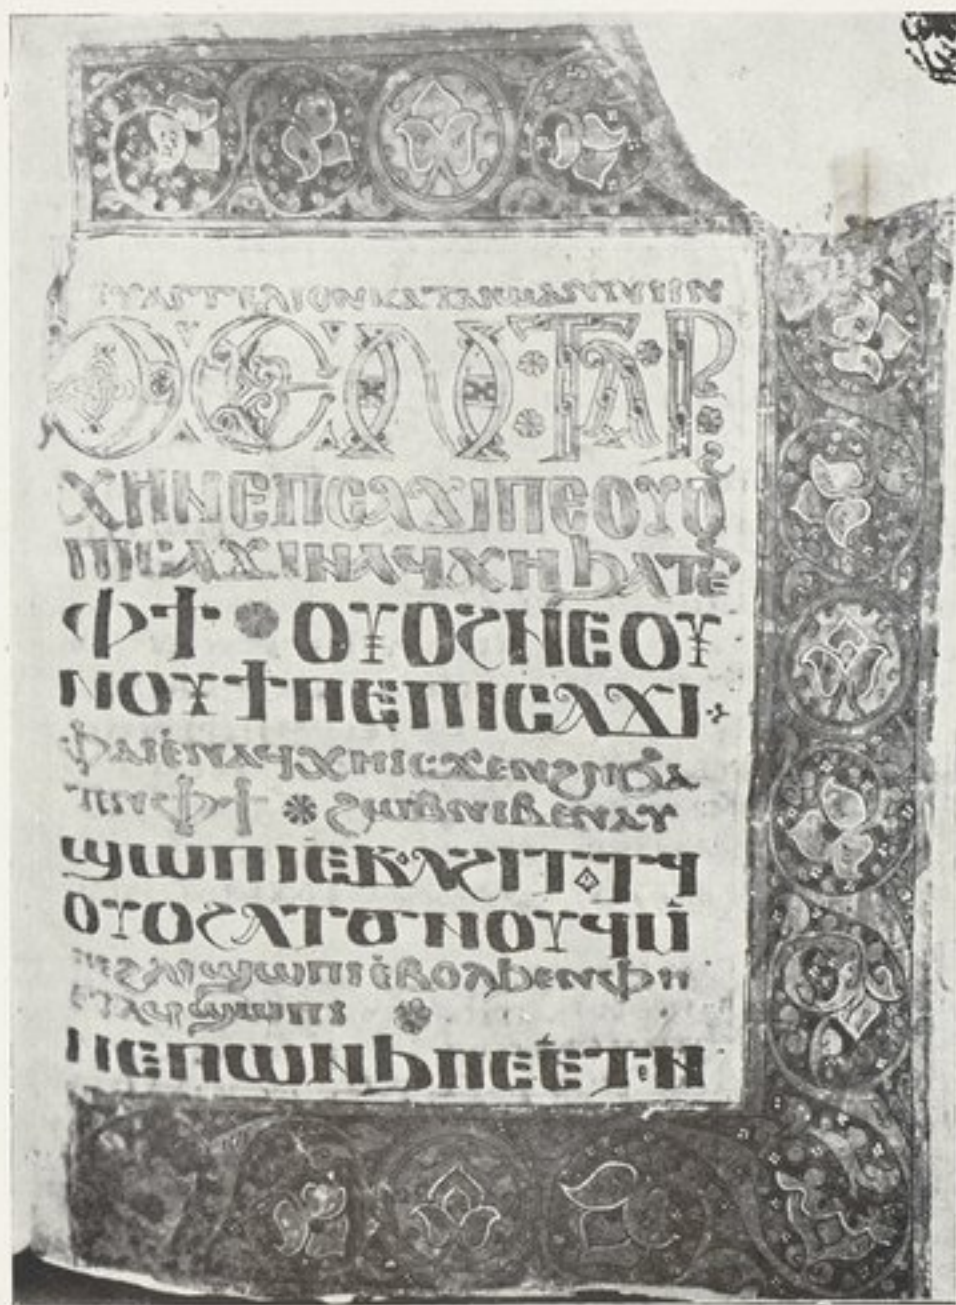 ⲉⲩⲁⲅⲅⲉⲗⲓⲟⲛⲕⲁⲧⲁ
ϧⲉⲛ ⲧⲁⲣ
ⲭⲏⲛⲉⲡⲥⲁϫⲓⲡⲉⲟⲩⲟϩ
ⲡⲓⲥⲁϫⲓⲛⲁϥⲭⲏϧⲁⲧⲉⲛ
ⲫϯ ⲟⲩⲟϩⲛⲉⲟⲩ
ⲛⲟⲩϯⲡⲉⲡⲓⲥⲁϫⲓ
ⲫⲁⲓⲉⲛⲁϥⲭⲏⲓⲥϫⲉⲛϩⲏϧⲁ
ⲧⲉⲛⲫϯ ϩⲱⲃⲛⲓⲃⲉⲛⲁⲩ
ϣⲱⲡⲓⲉⲃⲟⲗϩⲓⲧⲟⲧϥ
ⲟⲩⲟϩⲁⲧϭⲛⲟⲩϥⲙ̀
ⲡⲉϩⲗⲓϣⲱⲡⲓⲉ̀ⲃⲟⲗϧⲉⲛⲫⲏ
ⲉⲧⲁϥϣⲱⲡⲓ
ⲛⲉⲡⲱⲛϧⲡⲉⲉ̀ⲧⲉⲛ